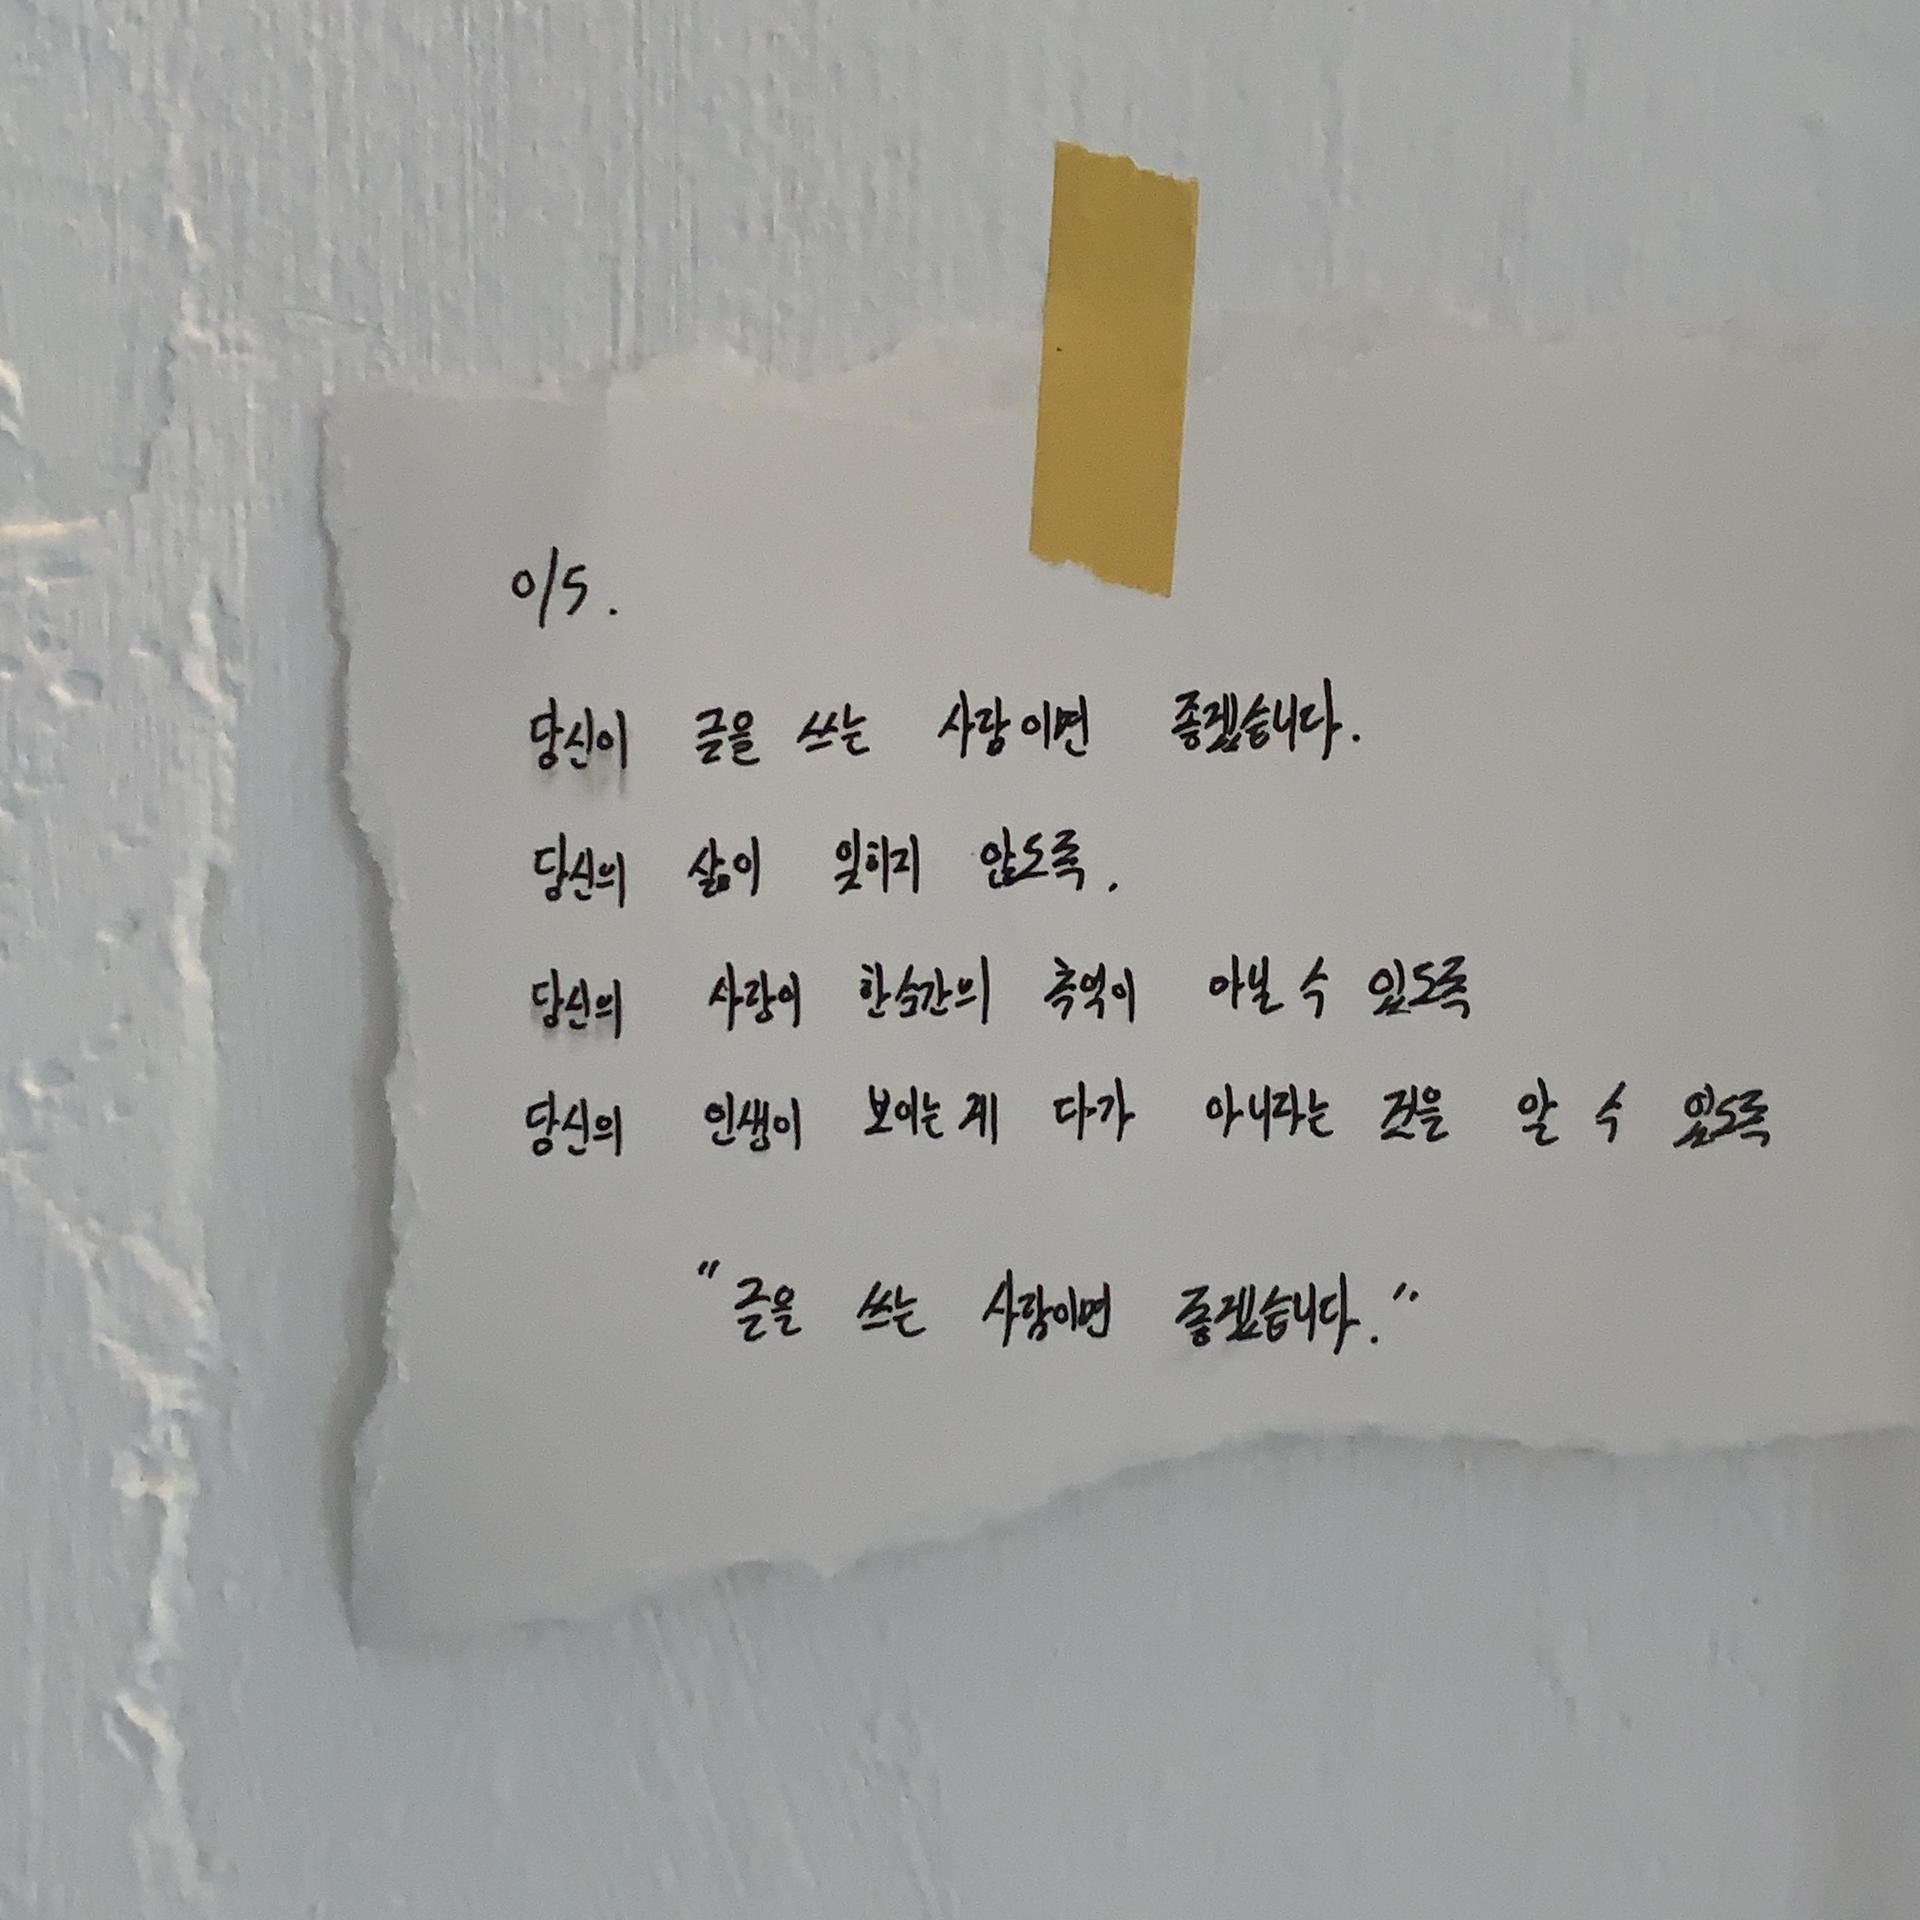 0/5.
당신이 글을 쓰는 사람이면 좋겠습니다.
당신의 삶이 잊히지 않도록.
당신의 사랑이 한순간의 추억이 아닐 수 있도록
당신의 인생이 보이는 게 다가 아니라는 것을 알 수 있도록
"글을 쓰는 사람이면 좋겠습니다."